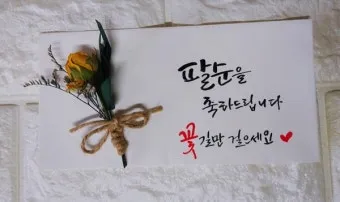 팔순을
축하드립니다
꽃길만 걸으세요